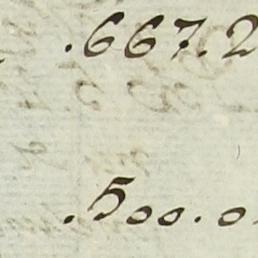 .667.2
.500.0